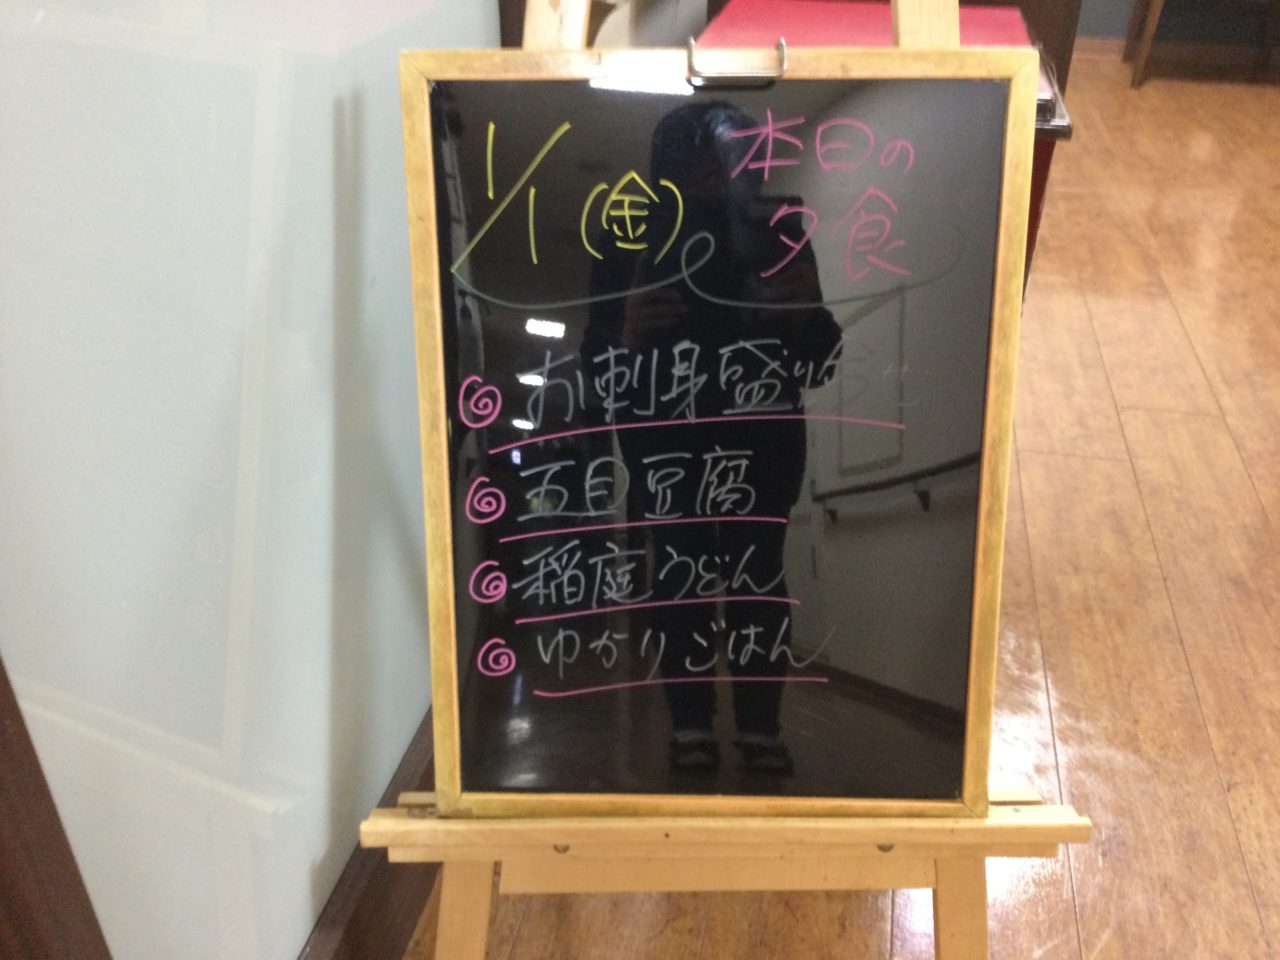 1/1 (金)
本日の
夕食
お刺身盛り合せ
五目豆腐
稲庭うどん
ゆかりごはん